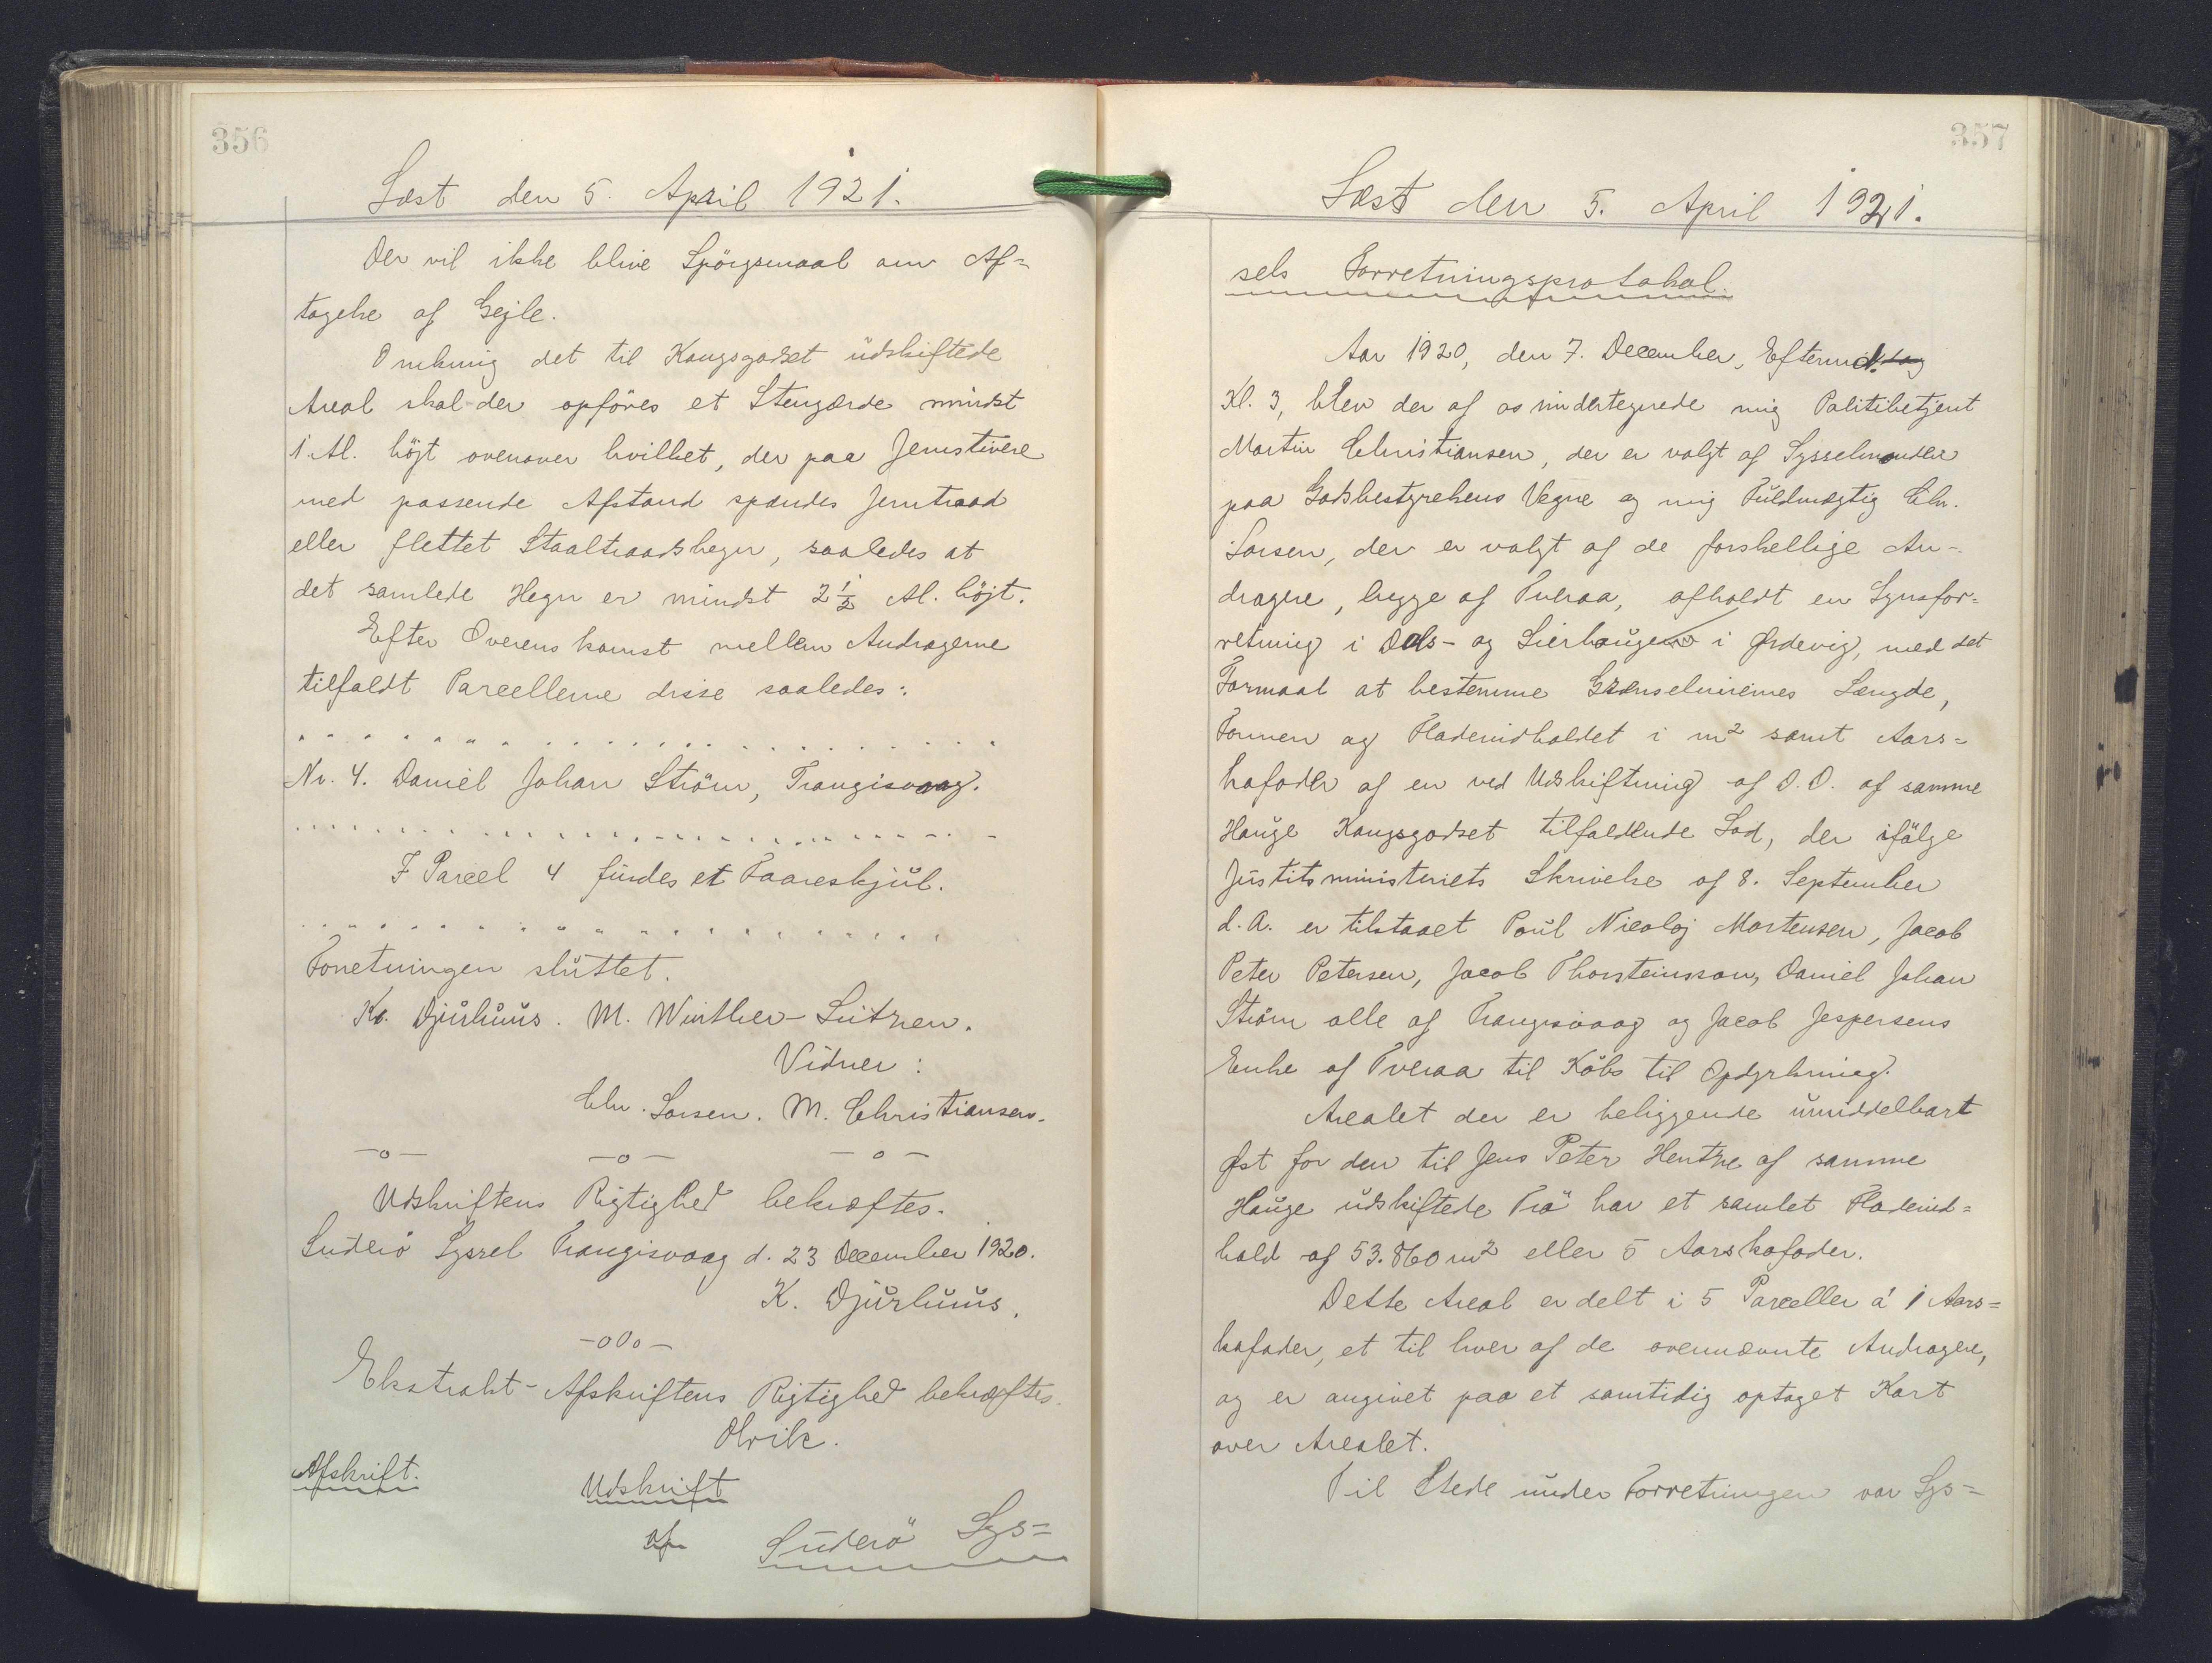 356
Læst den 5. April 1921.
Der vil ikke blive Spörgsmaal om Af=
tagelse af Gejle.
Omkring det til Kongsgodset udskiftede
Areal skal der opföres et Stengærde mindst
1 Al. höjt ovenover hvilket, der paa Jernstivere
med passende Afstand spændes Jerntraad
eller flettet Staaltraadshegn, saaledes at
det samlede Hegn er mindst 2½ Al. höjt.
Efter Overenskomst mellem Andragerne
tilfaldt Parcellerne disse saaledes:
. . . . . . . . . . . . . . . . . . . .
Nr. 4. Daniel Johan Ström, Trangisvaag.
. . . . . . . . . . . . . . . . . . . .
I Parcel 4 findes et Faareskjul.
. . . . . . . . . . . . . . . . . . . .
Forretningen sluttet.
Kr. Djurhuus. M. Winther-Lützen.
Vidner:
Chr. Larsen. M. Christiansen.
—o— —o— —o—
Udskriftens Rigtighed bekræftes.
Suderö Syssel Trangisvaag d. 23 December 1920.
K. Djurhuus.
—o0o—
Ekstrakt-Afskriftens Rigtighed bekræftes.
Olrik.
Afskrift.
Udskrift
af Suderö Sys=
357
Læst den 5. April 1921.
sels Forretningsprotokol.
Aar 1920, den 7. December, Eftermd.
Kl. 3, blev der af os undertegnede mig Politibetjent
Martin Christiansen, der er valgt af Sysselmanden
paa Godsbestyrelsens Vegne og mig Fuldmægtig Chr.
Larsen, der er valgt af de forskellige An-
dragere, begge af Tveraa, afholdt en Synsfor=
retning i Dals- og Lierhaugen i Ørdevig, med det
Formaal at bestemme Grænseliniernes Længde,
Formen og Fladeindholdet i m² samt Aars=
kofoder af en ved Udskiftning af D. D. af samme
Hauge Kongsgodset tilfaldende Lod, der ifölge
Justitsministeriets Skrivelse af 8. September
d. A. er tilstaaet Poul Nicolaj Mortensen, Jacob
Peter Petersen, Jacob Thorsteinsson, Daniel Johan
Ström alle af Trangisvaag og Jacob Jespersens
Enke af Tveraa til Köbs til Opdyrkning.
Arealet der er beliggende umiddelbart
Øst for den til Jens Peter Hentze af samme
Hauge udskiftede Trö har et samlet Fladeind=
hold af 53.860 m² eller 5 Aarskofoder.
Dette Areal er delt i 5 Parceller á 1 Aars=
kofoder, et til hver af de ovennævnte Andragere,
og er angivet paa et samtidig optaget Kort
over Arealet.
Til Stede under Forretningen var Sys=